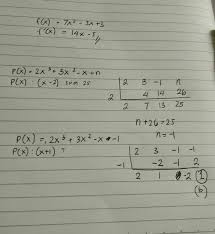 f(x) = 7x² - 5x + 3
f'(x) = 14x - 5 //
P(x) = 2x³ + 3x² - x + n
P(x) : (x-2) sisa 25
2 3 -1 n
2 4 14 26
2 7 13 25
n + 26 = 25
n = -1
P(x) = 2x³ + 3x² - x - 1
P(x) : (x+1) ?
2 3 -1 -1
-1 -2 -1 2
2 1 -2 1
(b)